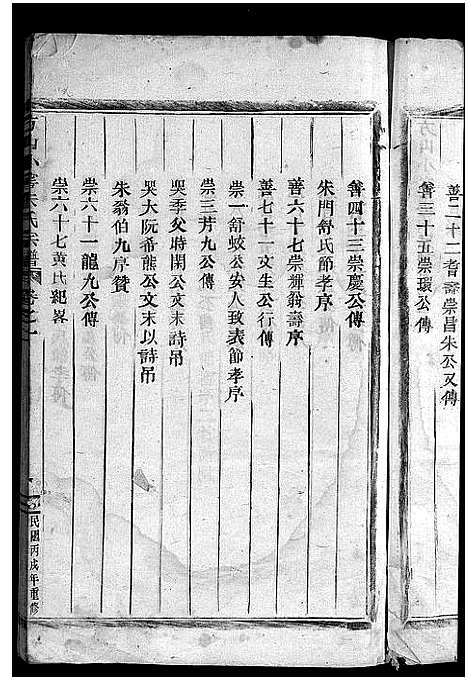 善二十二耆壽崇昌朱公又傳
善三十五崇環公傳
善四十三崇慶公傳
朱門舒氏節孝序
善六十七崇輝翁壽序
善七十一文生公行傳
崇一舒蛟公安人致表節孝序
崇三芳九公傳
吳季父時開公文末詩吊
吳大阮希熊公文末以詩吊
朱翁伯九序贊
崇六十一龍九公傳
崇六十七黃氏紀畧
方山小 朱氏宗譜 卷之一
民國丙戌年重修